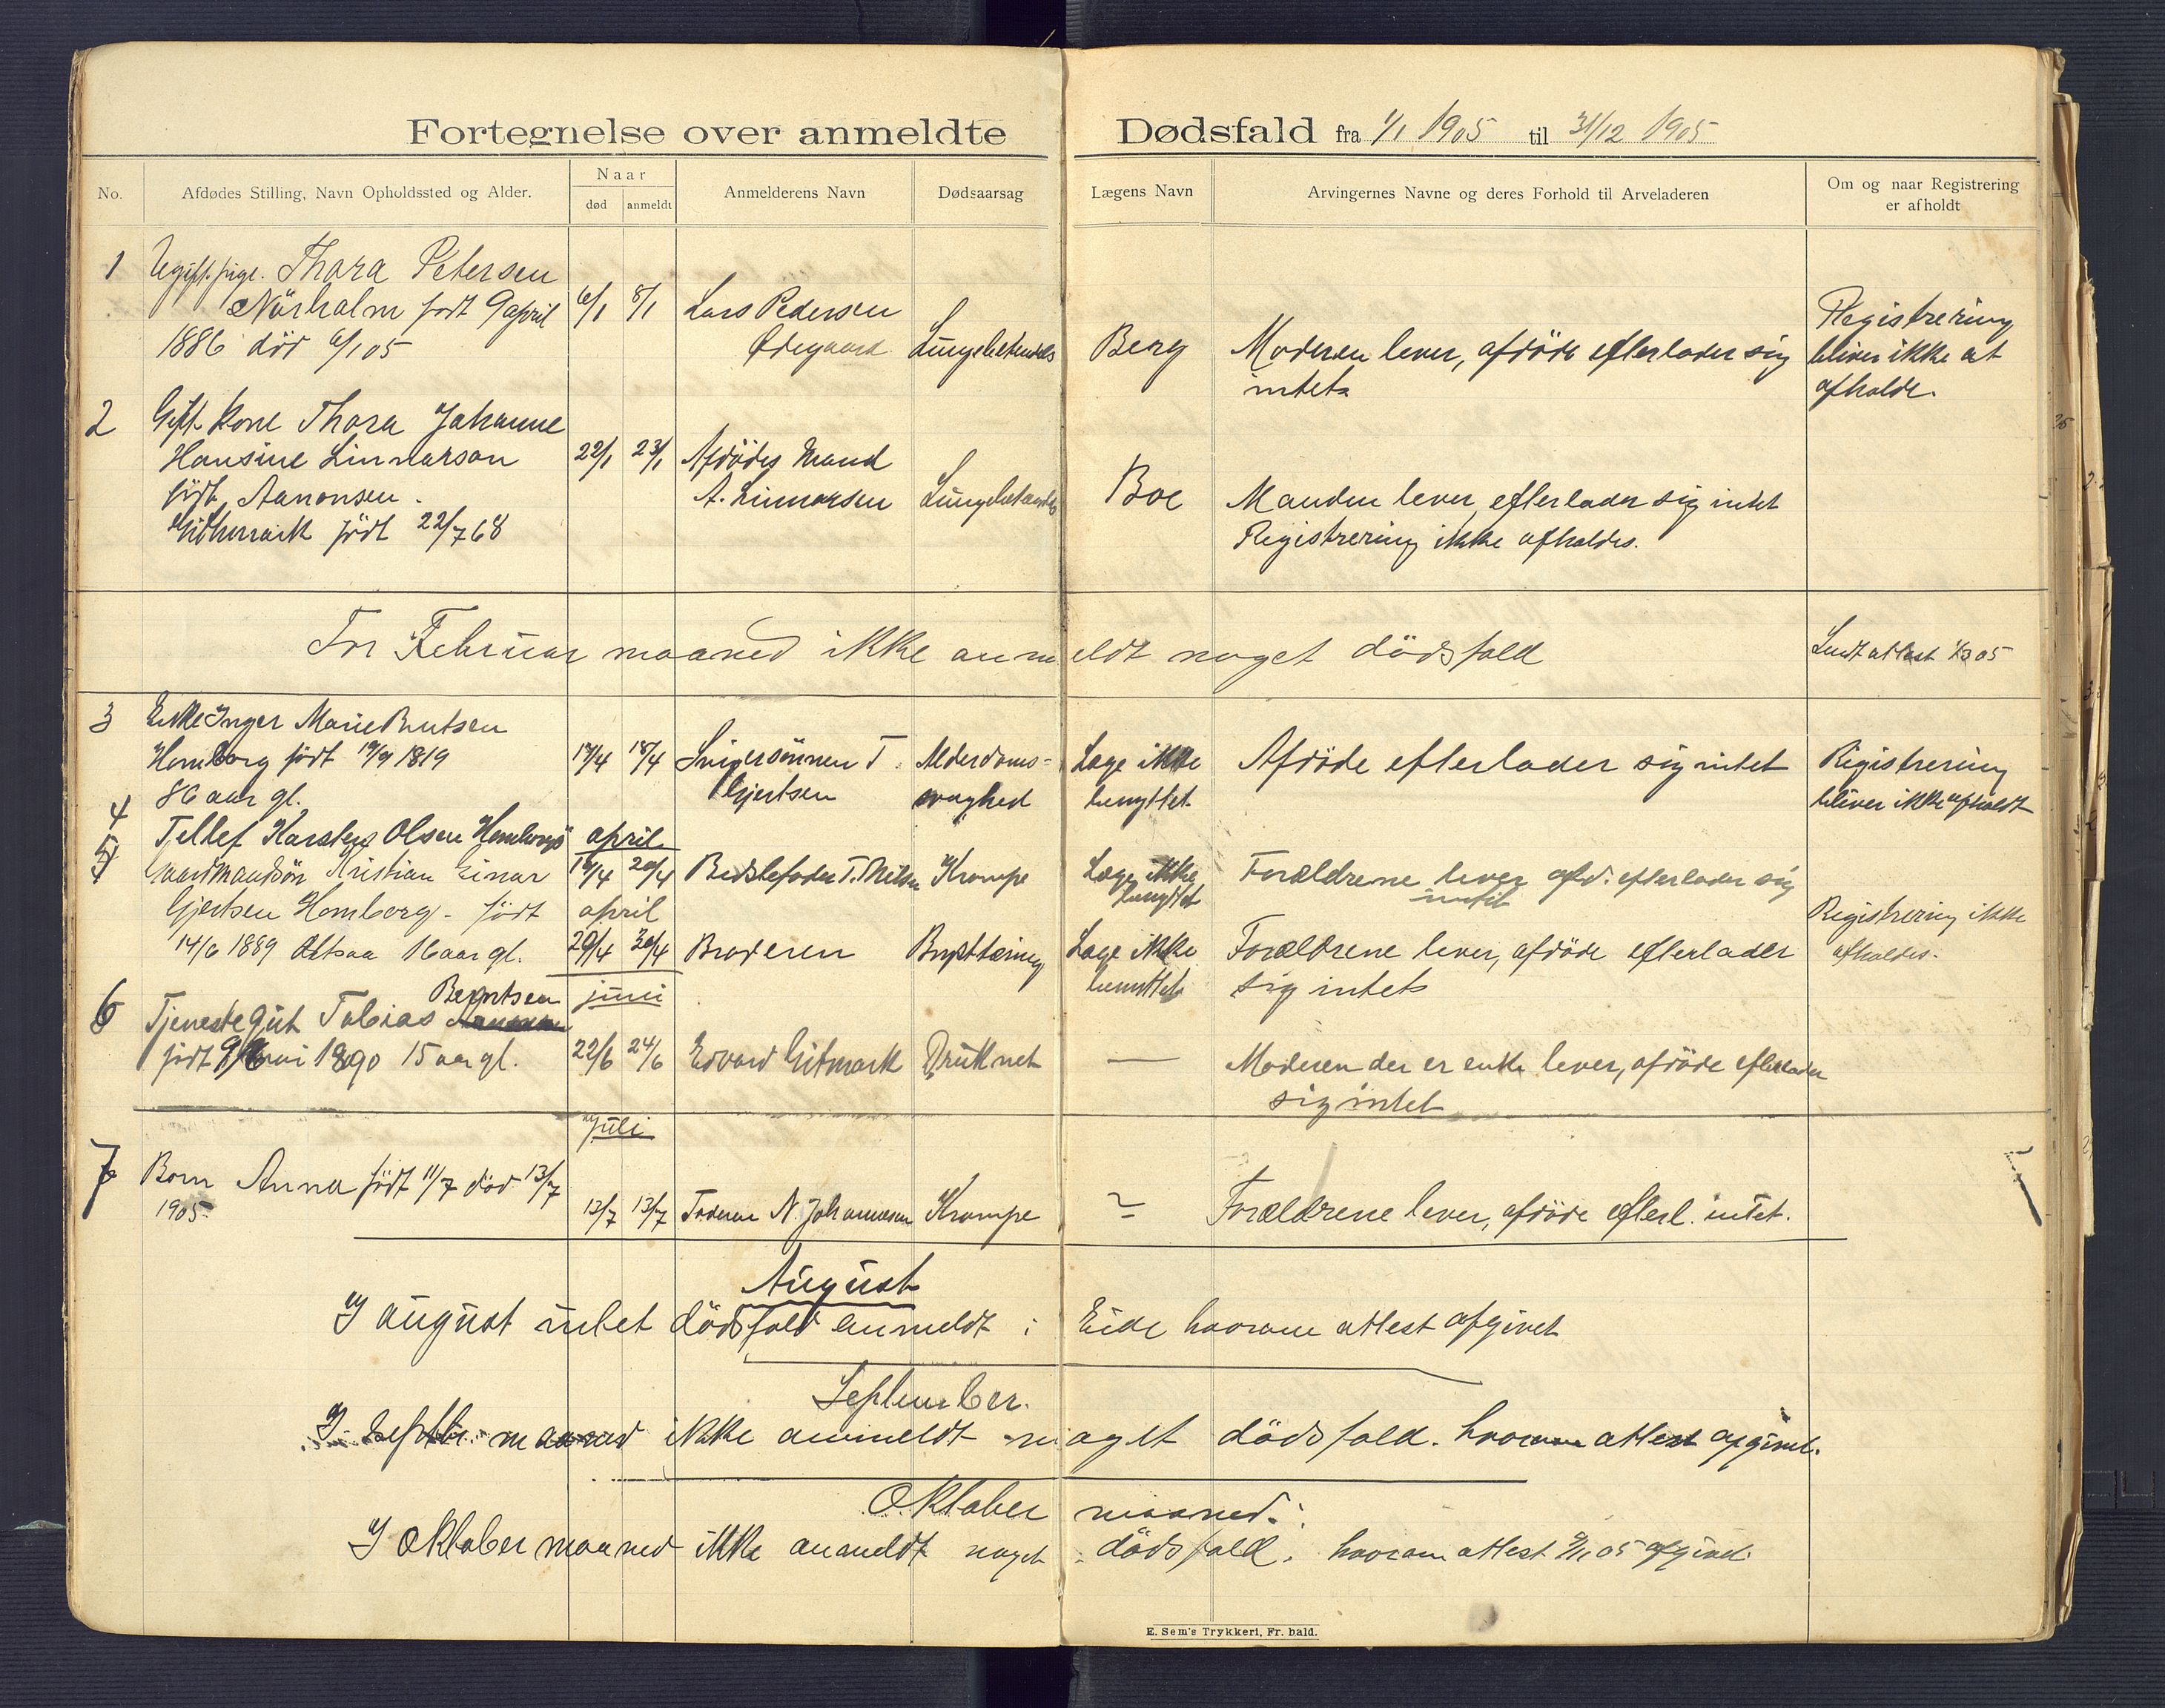 Fortegnelse over anmeldte Dødsfald fra 1/1 1905 til 31/12 1905
No. Afdødes Stilling, Navn Opholdssted og Alder. Naar død anmeldt Anmelderens Navn Dødsaarsag Lægens Navn Arvingernes Navne og deres Forhold til Arveladeren Om og naar Registrering er afholdt
1 Ugift pige. Thora Petersen
Nörholm født 9 april 6/1 8/1 Lars Pedersen Registrering
1886 död 6/1 05 Ødegaard Lungebetændels Berg Moderen lever, afdöde efterlader sig bliver ikke at
intet afholde.
2 Gift kone Thora Johanne
Hansine Linnarson 22/1 23/1 Afdödes Mand
född Aanonsen. A. Linnarsen Lungebetændels Boe Manden lever, efterlader sig intet
født 22/7 68 Registrering ikke afholdes.
For Februar maaned ikke anmeldt noget dödsfald Sendt attest 1/3 05
3 Enke Inger Marie Knutsen
Homborg födt 19/9 1819 17/4 18/4 Svigersönnen T. Alderdoms- Læge ikke Afdöde efterlader sig intet Registrering
86 aar gl. Gjertsen svaghed benyttet bliver ikke afholdt
4 Tellef Karsten Olsen Homborg april
5 Gaardmandsön Kristian Einar 19/4 20/4 Bedstefader T. Nilsen Krampe Læge ikke benyttet Forældrene lever afd. efterlader sig intet
Gjertsen Homborg - födt april Registrering ikke
14/6 1889 altsaa 16 aar gl. 29/4 30/4 Broderen Brysttæring Læge ikke Forældrene lever, afdöde efterlader afholdes.
benyttet sig intet
Berntsen juni
6 Tjenestegut Tobias
födt 9 mai 1890 15 aar gl. 22/6 24/6 Edvard Gitmark Druknet — Moderen der er enke lever, afdöde efterlader
sig intet
Juli
7 Barn Anna födt 11/7 död 13/7
1905 13/7 13/7 Faderen N. Johannesen Krampe Forældrene lever, afdöde efterl. intet.
August
I august intet dödsfald anmeldt i Eide hvorom attest afgivet
September.
I septbr. maaned ikke anmeldt noget dödsfald. hvorom attest afgivet.
Oktober maaned.
I Oktober maaned ikke anmeldt noget dödsfald, hvorom attest 05 afgivet
E. Sem's Trykkeri, Fr. hald.